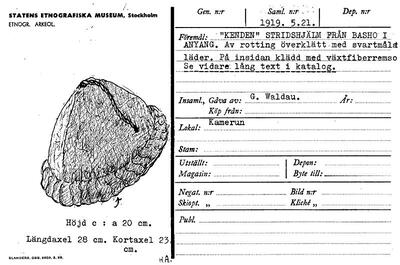 STATENS ETNOGRAFISKA MUSEUM, Stockholm
ETNOGR. ARKEOL.
Höjd c : a 20 cm.
Längdaxel 28 cm. Kortaxel 23
cm.
Gen. n:r
Saml. n:r
1919. 5.21.
Föremål: "KENDEN" STRIDSHJÄLM FRÅN BASHO I
ANYANG. Av rotting överklätt med svartmålat
läder. På insidan klädd med växtfiberremso
Se vidare lång text i katalog.
Insaml., Gåva av: G. Waldau. År:
Köp från:
Lokal: Kamerun
Stam:
Utställt: Depon:
Magasin: Byte till:
Negat. n:r Bild n:r
Skiopt. „ Kliché „
Publ.
H.A.